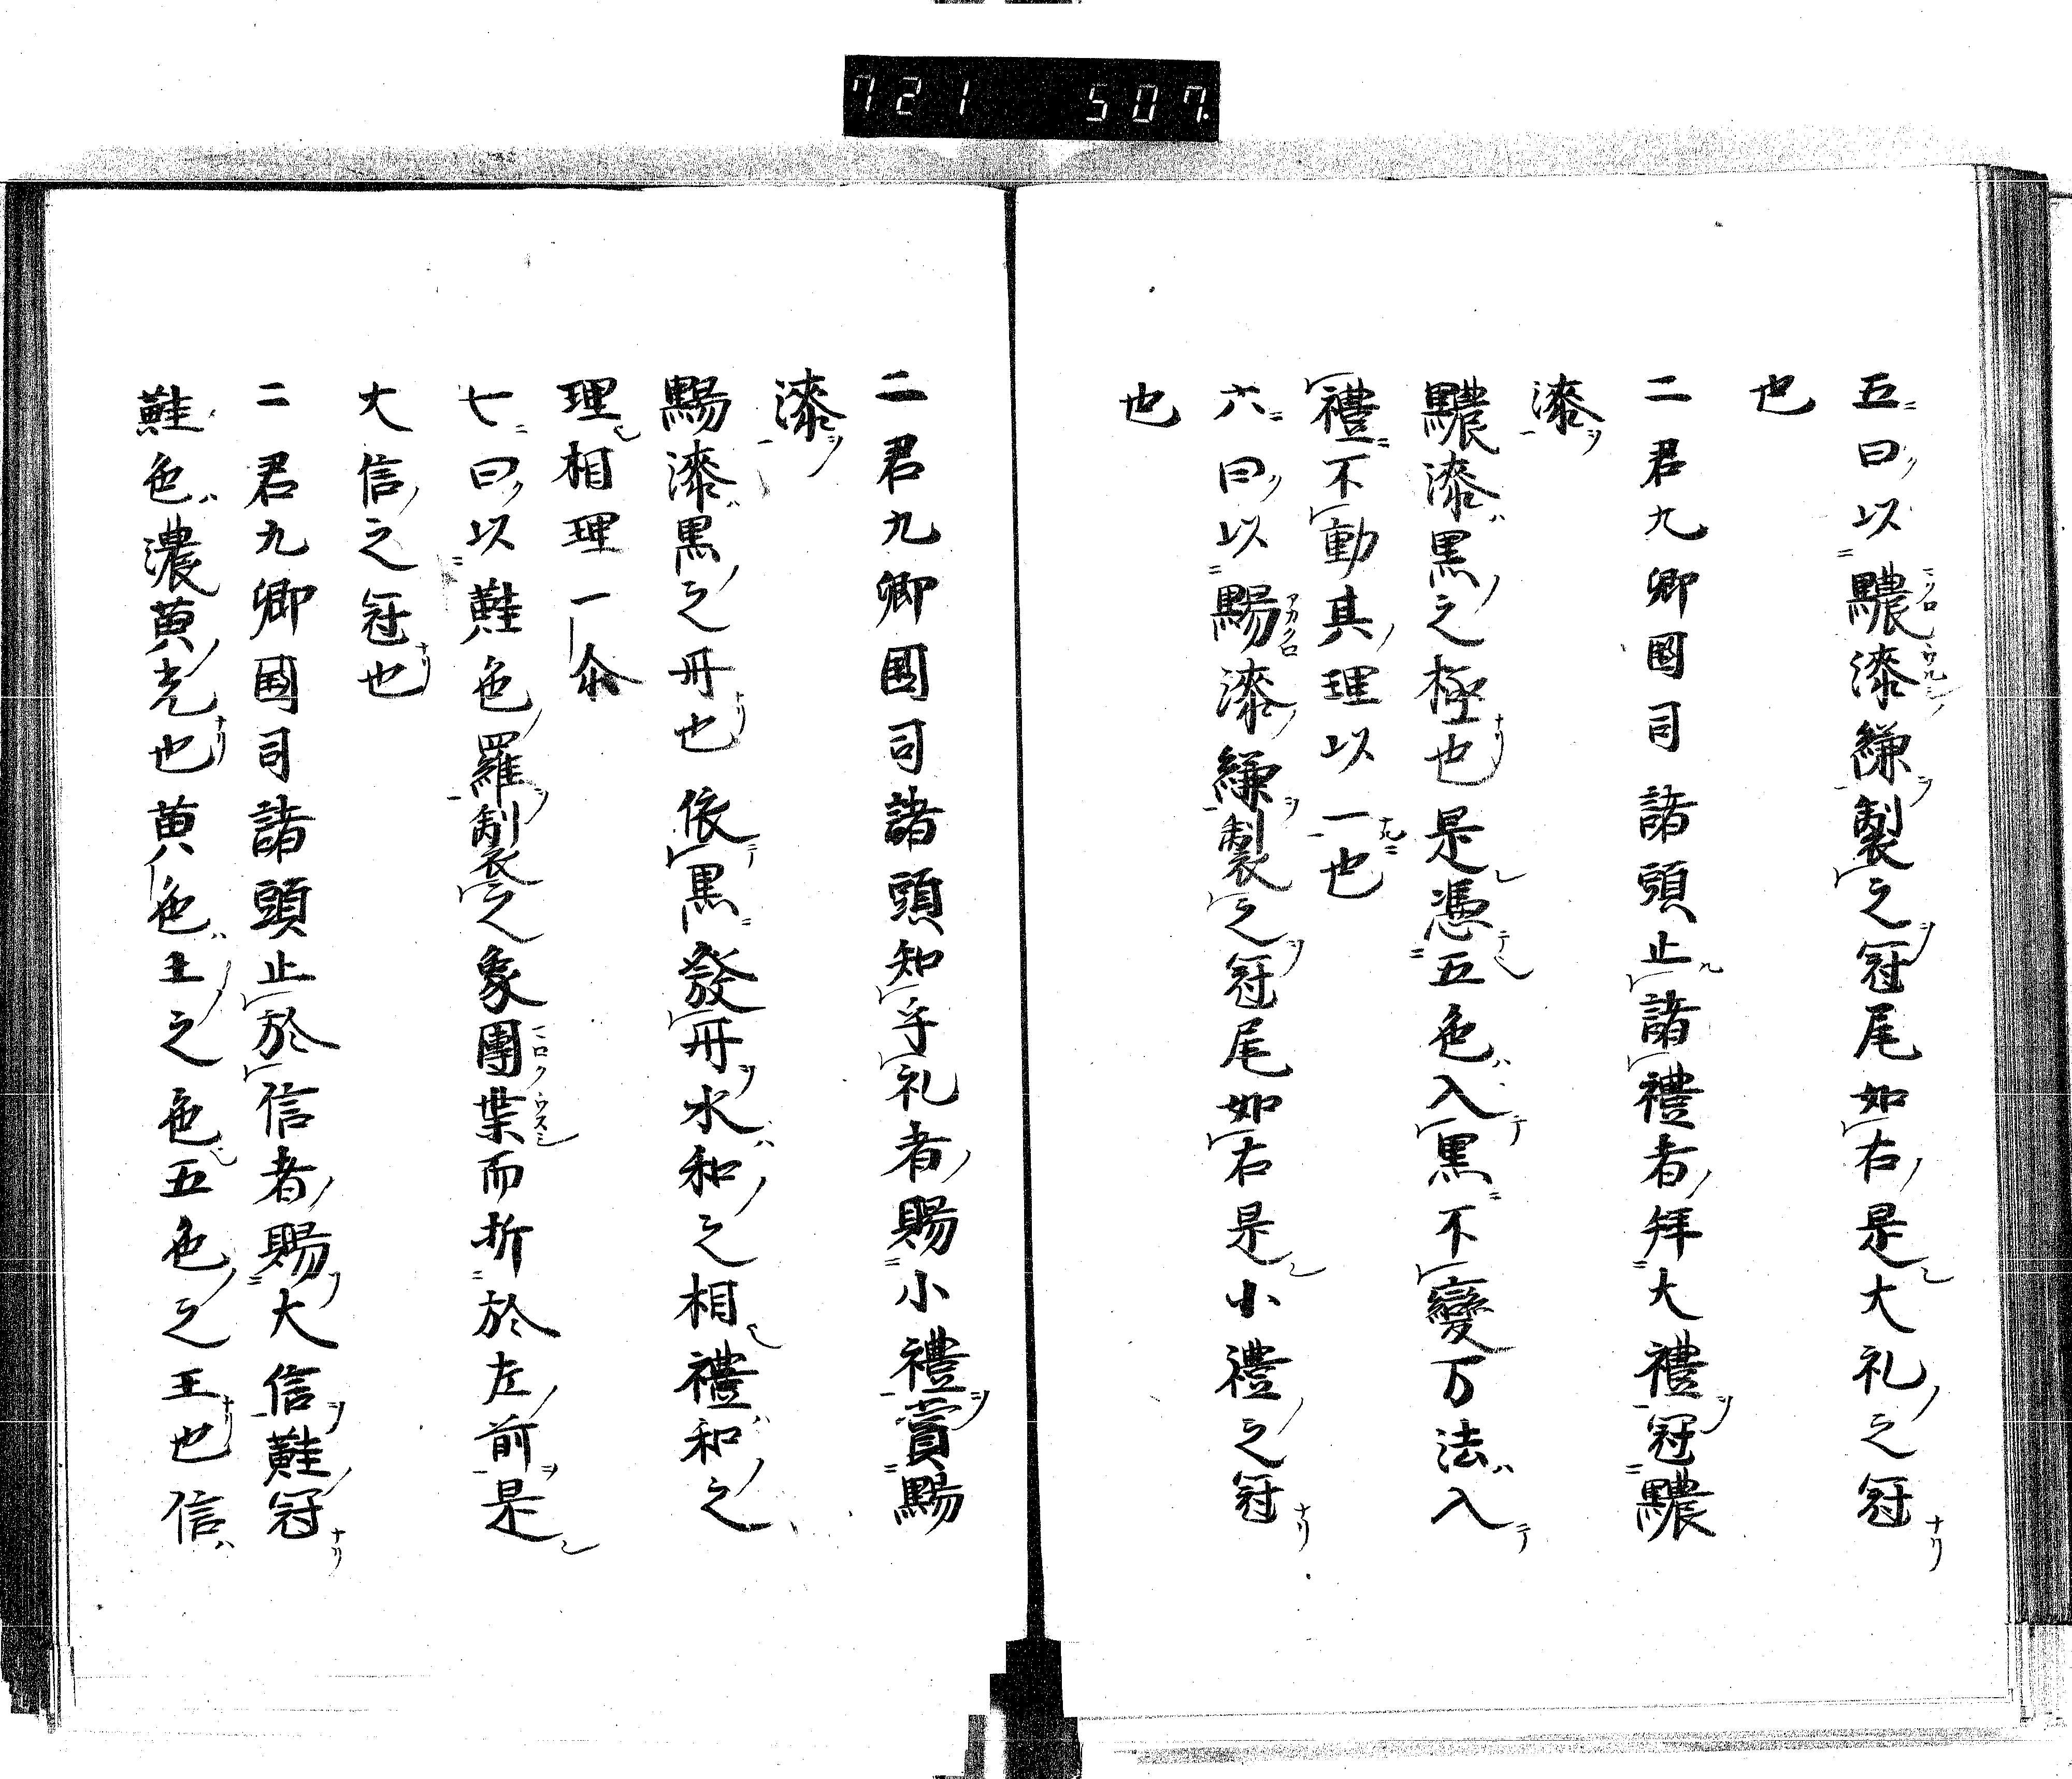 721 507
五曰以䵜漆縑製之冠尾如右是大礼之冠
也
二君九卿國司諸頭止諸禮者拜大禮冠䵜
漆
䵜漆黒之極也是憑五色入黒不變万法入
禮不動其理以一也
六曰以漆縑製之冠尾如右是小禮之冠
也
二君九卿國司諸頭知乎礼者賜小禮賞
漆
漆黒之丹也依黒發丹水和之相禮和之
理相理一介
七曰以黊色羅製之象團葉而折於左前是
大信之冠也
二君九卿國司諸頭止於信者賜大信黊冠
黊色濃黄光也黄色土之色五色之王也信